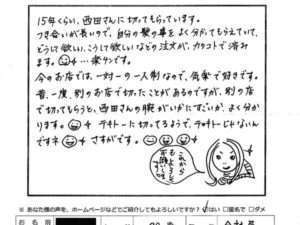 15年くらい、西田さんに切ってもらっています。
つき合いが長いので、自分の髪の事をよく分かってもらえていて、
どうして欲しい、こうして欲しいなどの注文が、カンタンで済み
ます。…楽チンです。
今のお店では、一対一の一人制なので、気楽で好きです。
昔、一度、別のお店で切ったことがあるのですが、別の店
で切ってもらうと、西田さんの腕がいかにすごいか、よく分か
ります。テキトーに切ってるようで、テキトーじゃないん
ですネ さすがです。
これから
もよろしく
お願いします。
※あなた様の声を、ホームページなどでご紹介してもよろしいですか？ はい □匿名で □ダメ
お名前